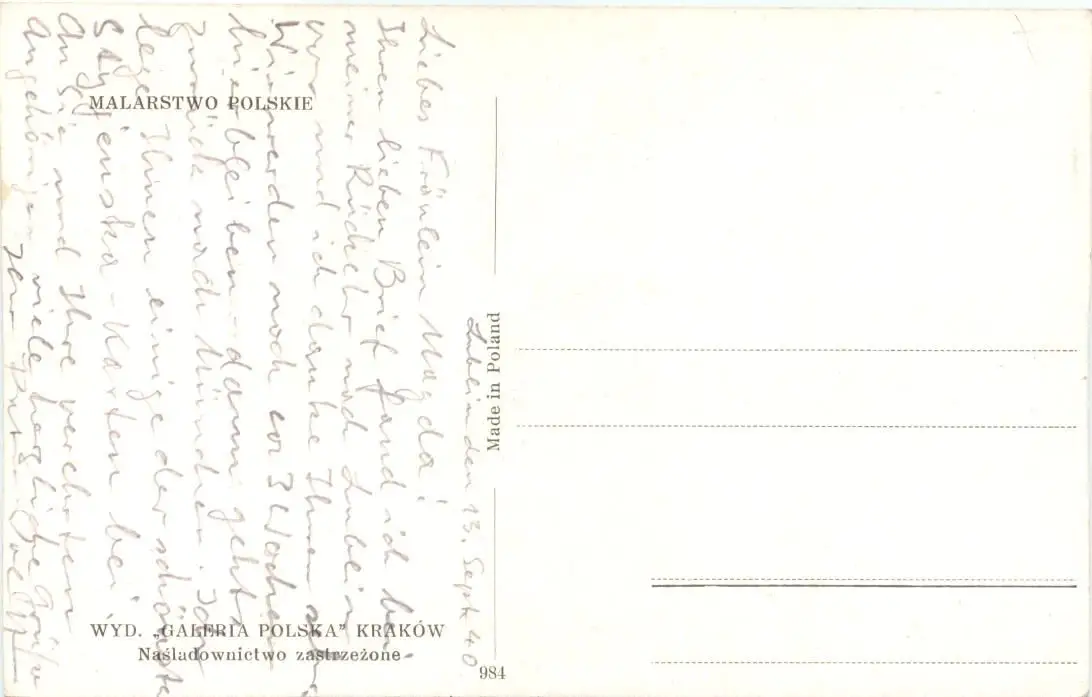 Lublin den 13. Sept. 40
Liebes Fräulein Magda!
Ihren lieben Brief fand ich bei
meiner Rückkehr nach Lublin
vor und ich danke Ihnen sehr.
Wir werden noch ca 3 Wochen
hier bleiben – dann gehts
zurück nach München. Ich
lege Ihnen einige der schönsten
Karten bei.
An Sie und Ihre verehrten
Angehörigen viele herzliche Grüße
MALARSTWO POLSKIE
WYD. „GALERIA POLSKA” KRAKÓW
Naśladownictwo zastrzeżone
Made in Poland
984